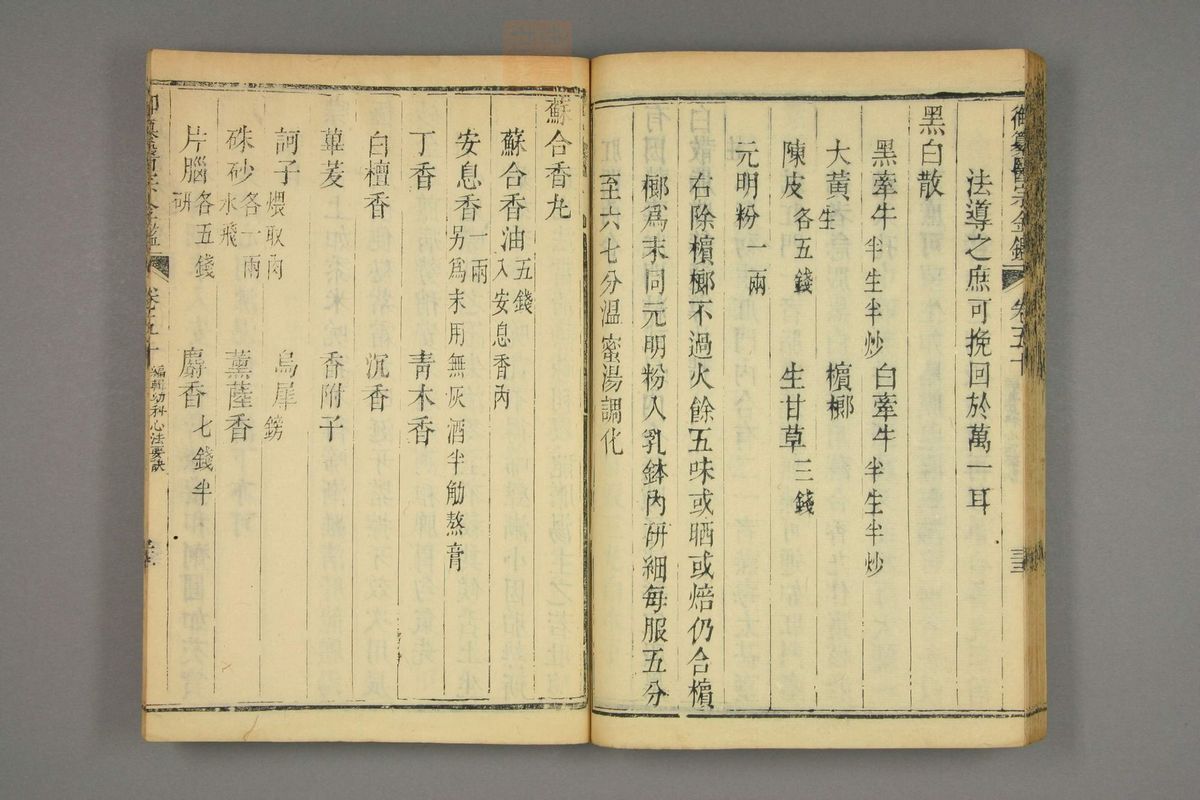 御纂醫宗金鑑 卷五十
法導之庶可挽回於萬一耳
黑白散
黑牽牛 半生半炒 白牽牛 半生半炒
大黃 生 檳榔
陳皮 各五錢 生甘草 三錢
元明粉 一兩
右除檳榔不過火餘五味或晒或焙仍合檳
榔爲末同元明粉入乳鉢內研細每服五分
至六七分溫蜜湯調化
蘇合香丸
蘇合香油 五錢入安息香內
安息香 一兩另爲末用無灰酒半觔熬膏
丁香 青木香
白檀香 沉香
蓽茇 香附子
訶子 煨取肉 烏犀 鎊
硃砂 各一兩水飛 薰薩香
片腦 各五錢研 麝香 七錢半
御纂醫宗金鑑 卷之五十 編輯幼科心法要訣